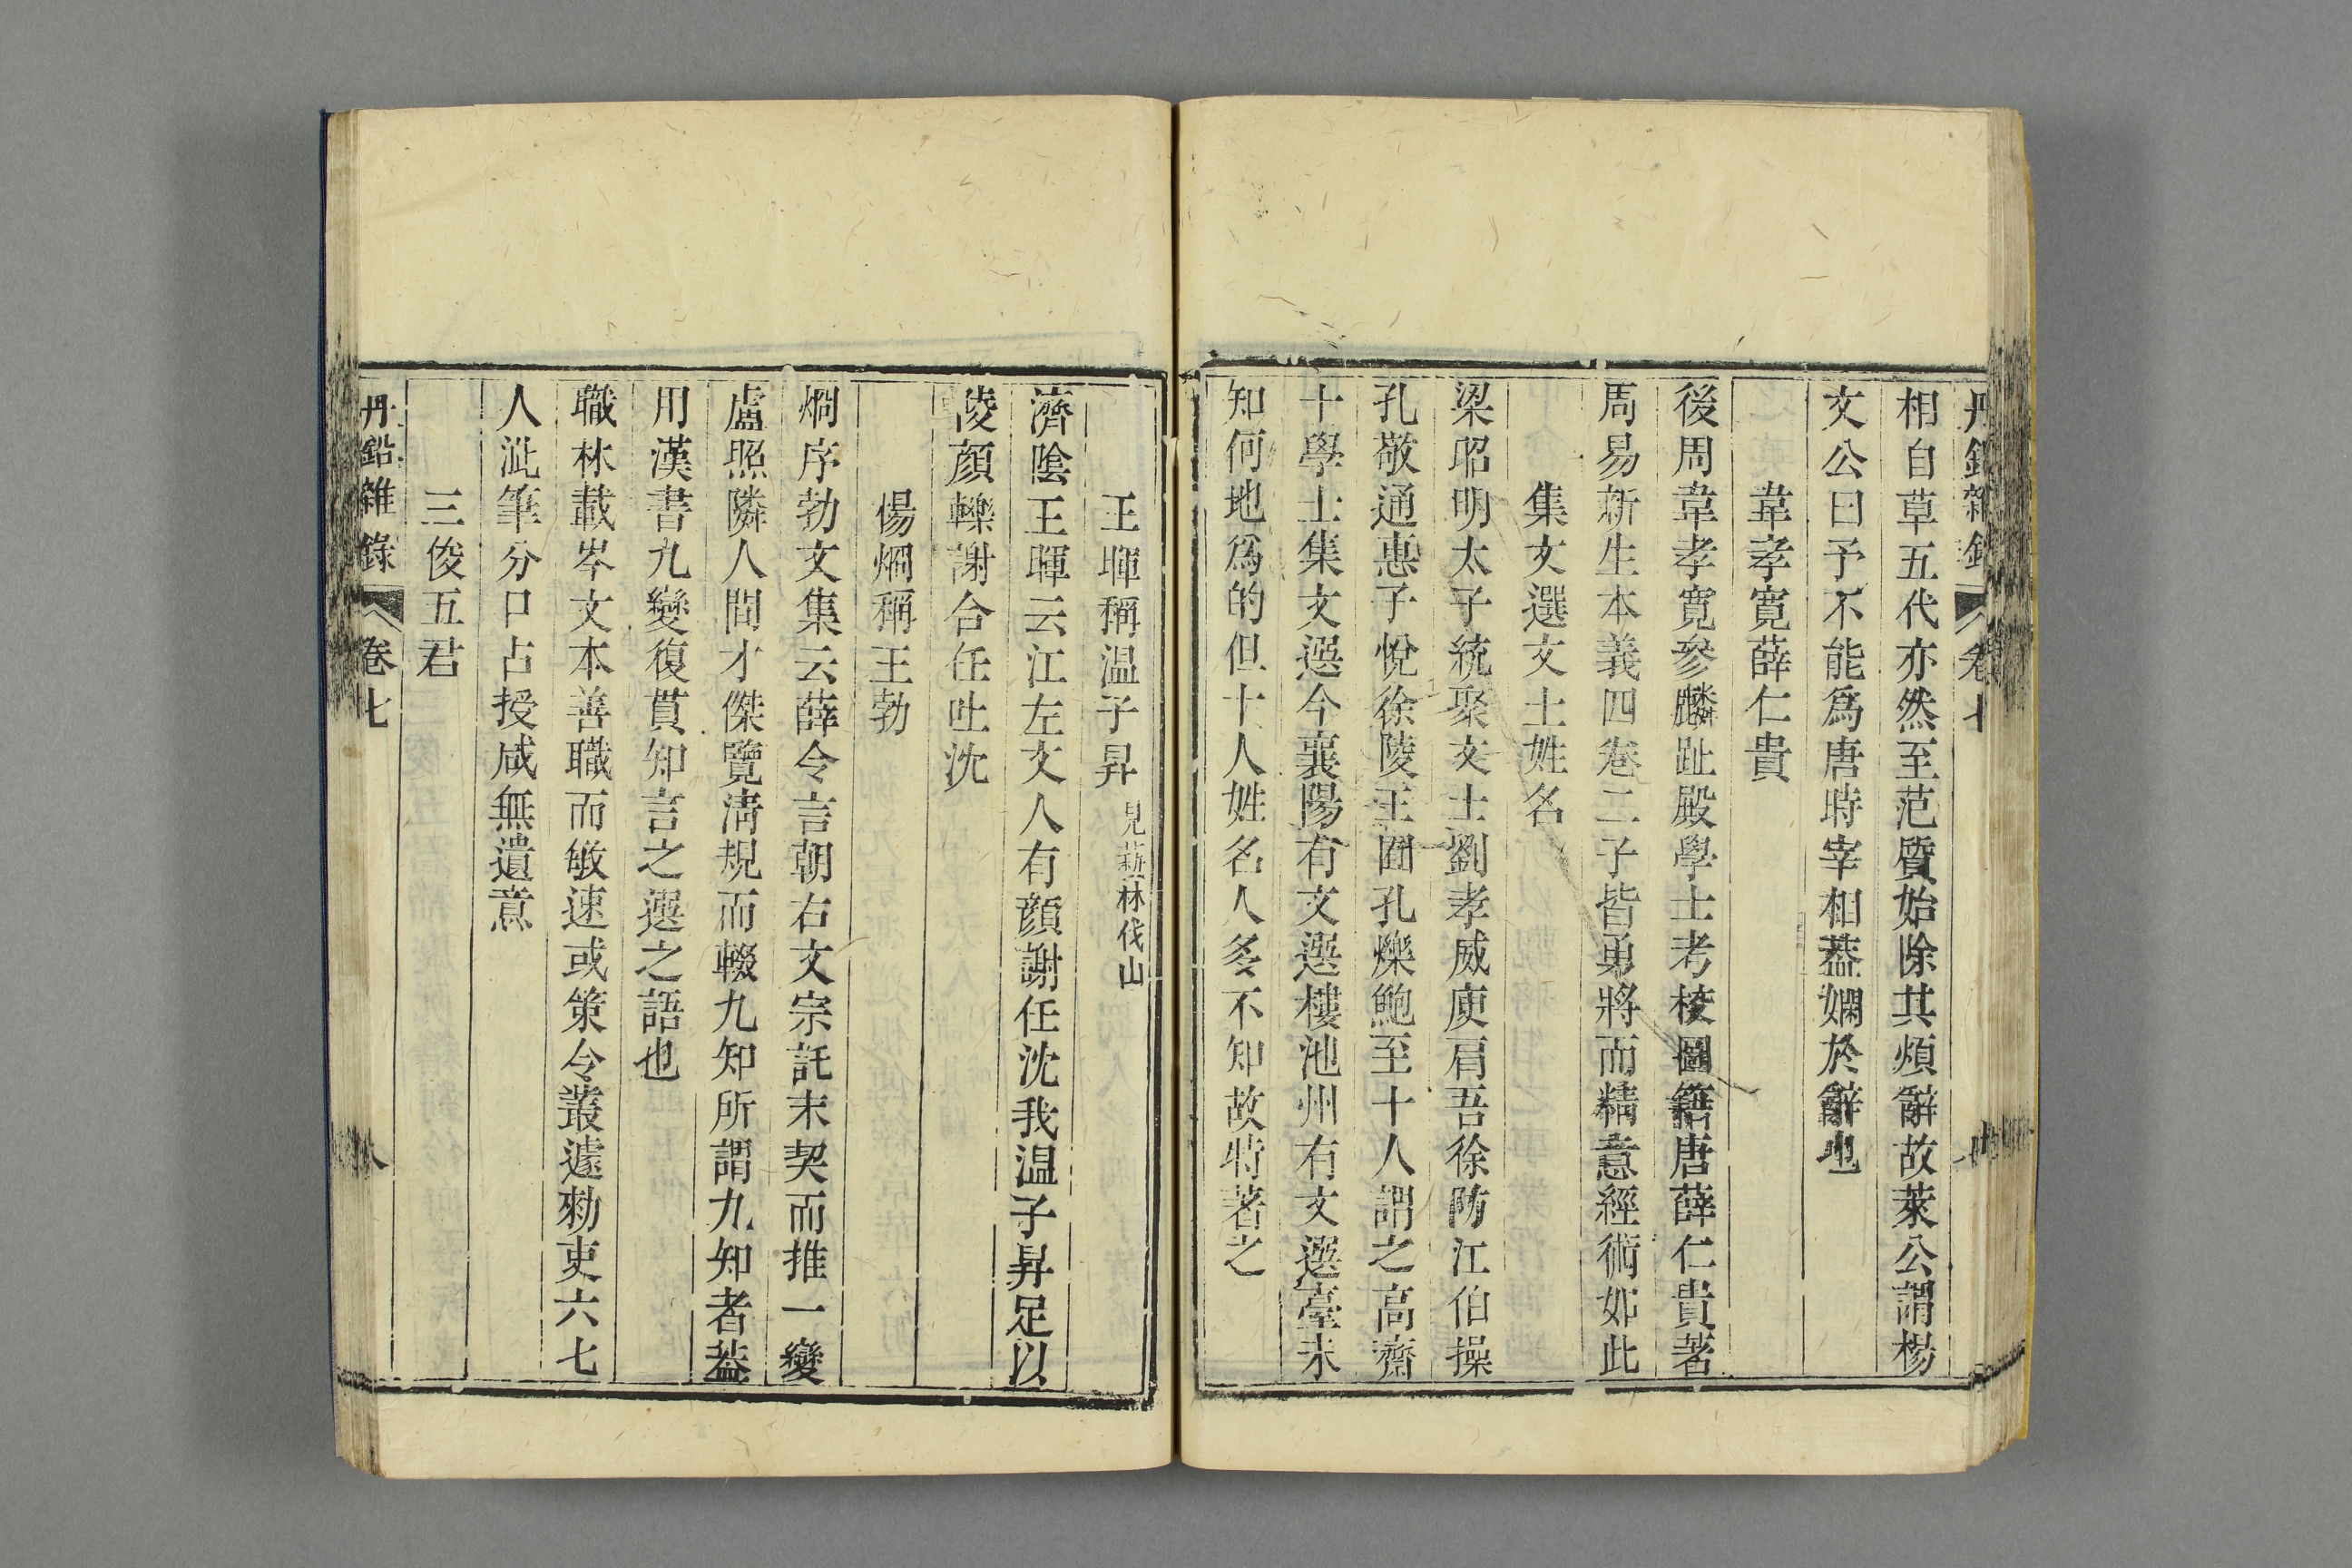 丹鉛雜錄 卷七
相自草五代亦然至范質始除其煩辭故萊公謂楊
文公曰予不能爲唐時宰相葢嫻於辭也
韋孝寛薛仁貴
後周韋孝寛參麟趾殿學士考校圖籍唐薛仁貴著
周易新生本義四卷二子皆勇將而精意經術如此
集文選文士姓名
梁昭明太子統聚文士劉孝威庾肩吾徐防江伯操
孔敬通惠子悅徐陵王囿孔爍鮑至十人謂之高齋
十學士集文選今襄陽有文選樓池州有文選臺未
知何地爲的但十人姓名人多不知故特著之
王暉稱温子昇 見藝林伐山
濟陰王暉云江左文人有顔謝任沈我温子昇足以
陵顔轢謝合任吐沈
楊烱稱王勃
烱序勃文集云薛令言朝右文宗託末契而推一變
盧照隣人間才傑覽淸規而輟九知所謂九知者葢
用漢書九變復貫知言之選之語也
職林載岑文本善職而敏速或策令叢遽勑吏六七
人泚筆分口占授咸無遺意
三俊五君
丹鉛雜錄 卷七 八